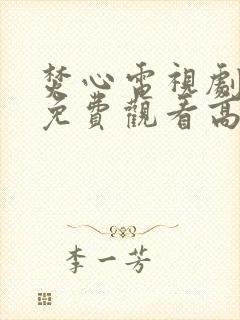 焚心電視劇
免費觀看高
李一芳